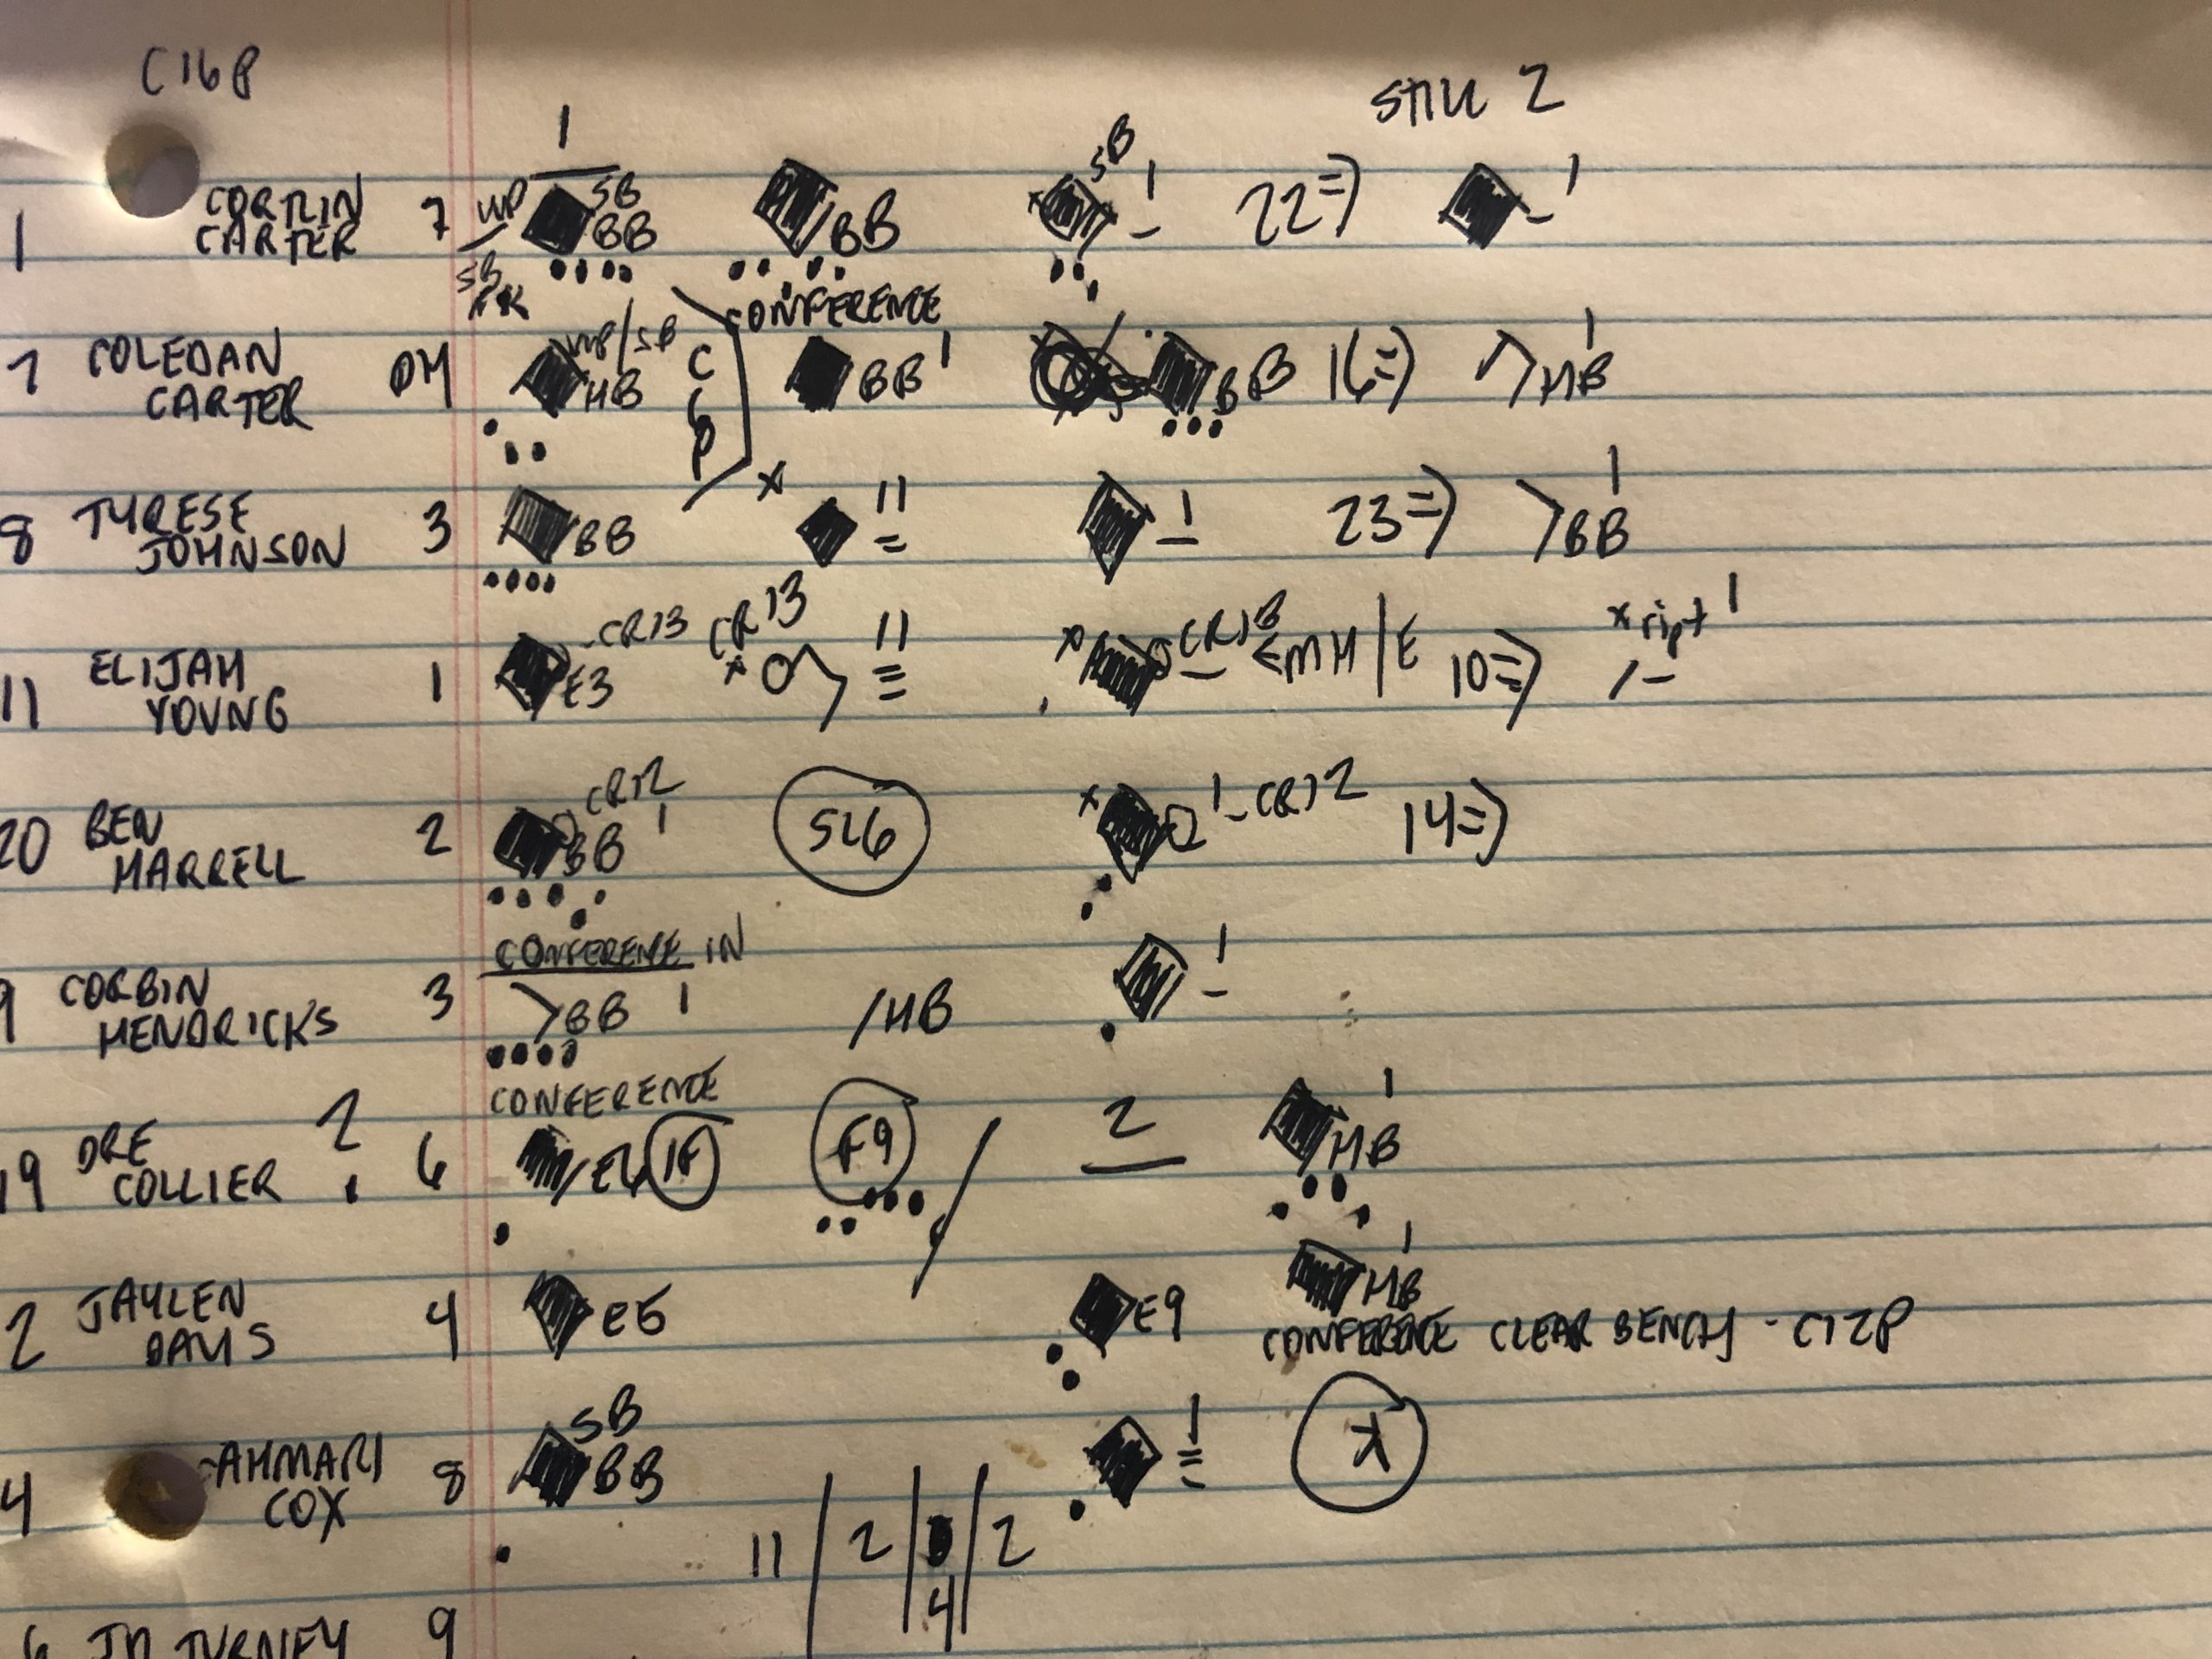 C16P
STILL 2
1
1 CORRIN 7 WP SB SB 1 22=> 1
CARTER BB BB -  -
SB
CONFERENCE
7 COLEDAN DH WP/SB C BB 1 BB 16=> 1
CARTER HB 6 HB
P
8 TYRESE 3 BB x 11 1 23=> 1
JOHNSON = - BB
11 ELIJAH 1 -CR13 CR13 11 x CR13 10=> x 1
YOUNG E3 x - /-
20 BEN 2 CR12 SL6 x 1-CR12 14=>
HARRELL BB 1
CONFERENCE IN
9 CORBIN 3 BB 1 /HB 1
HENDRICKS -
CONFERENCE
19 DRE 2 6 F9 2 1
COLLIER HB
2 JAYLEN 4 E5 E9 1
DAVIS HB
CONFERENCE CLEAR BENCH - C12P
4 AHMARI 8 SB 1 K
COX BB =
11 | 2 | | 2
4
6 TURNEY 9